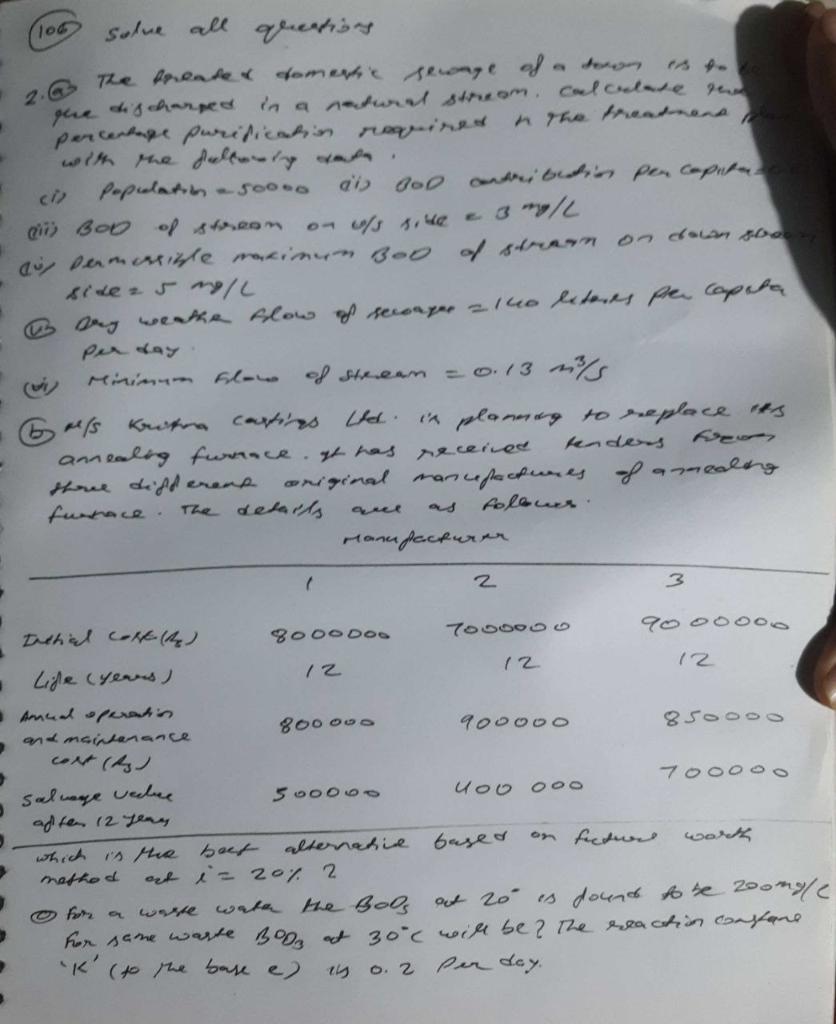 106 solve all questions
2. (a) The treated domestic sewage of a town is to be
discharged in a natural stream. Calculate the
percentage purification required in the treatment
with the following data.
(i) Population = 50000 (ii) BOD contribution per capita
(iii) BOD of stream on u/s side = 3 mg/L
(iv) permissible maximum BOD of stream on down stream
side = 5 mg/L
(v) Dry weather flow of sewage = 140 liters per capita
per day.
(vi) Minimum flow of stream = 0.13 m³/s
(b) M/s Krishna Castings Ltd. is planning to replace its
annealing furnace. It has received tenders from
three different original manufactures of annealing
furnace. The details are as follows.
Manufacturer
1 2 3
Initial cost (Rs) 8000000 7000000 9000000
Life (years) 12 12 12
Annual operation
and maintenance 800000 900000 850000
cost (Rs)
Salvage value 500000 400 000 700000
after 12 years
which is the best alternative based on future worth
method at i = 20% ?
(c) For a waste water the BOD5 at 20° is found to be 200mg/L
For same waste BOD3 at 30°C will be? The reaction constant
'K' (to the base e) is 0.2 per day.